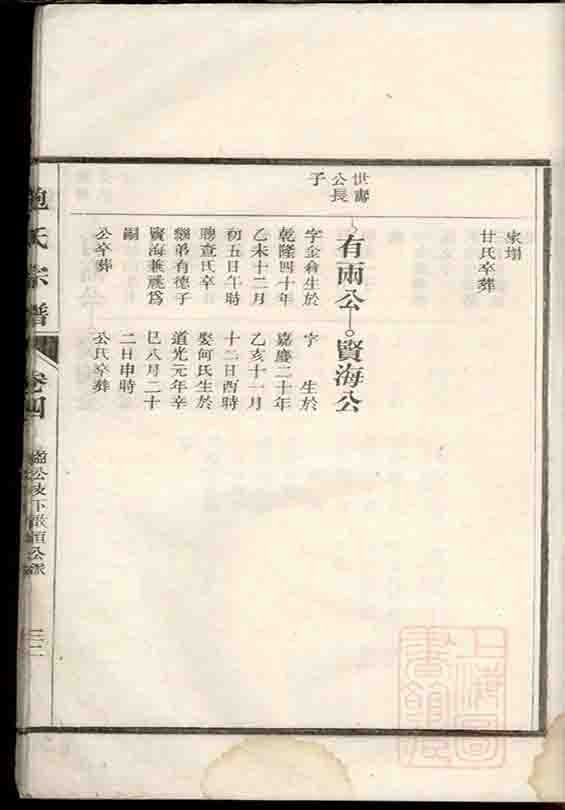 家塌
甘氏卒葬
世壽
公長
子
有兩公
賢海公
字金肴生於
乾隆四十年
乙未十二月
初五日午時
聘查氏卒
繼弟有德子
賢海兼祧爲
嗣
公卒葬
字　生於
嘉慶二十年
乙亥十一月
十二日酉時
娶何氏生於
道光元年辛
巳八月二十
二日申時
公氏卒葬
鮑氏宗譜
卷四
公枝下
公派
上海圖書館藏